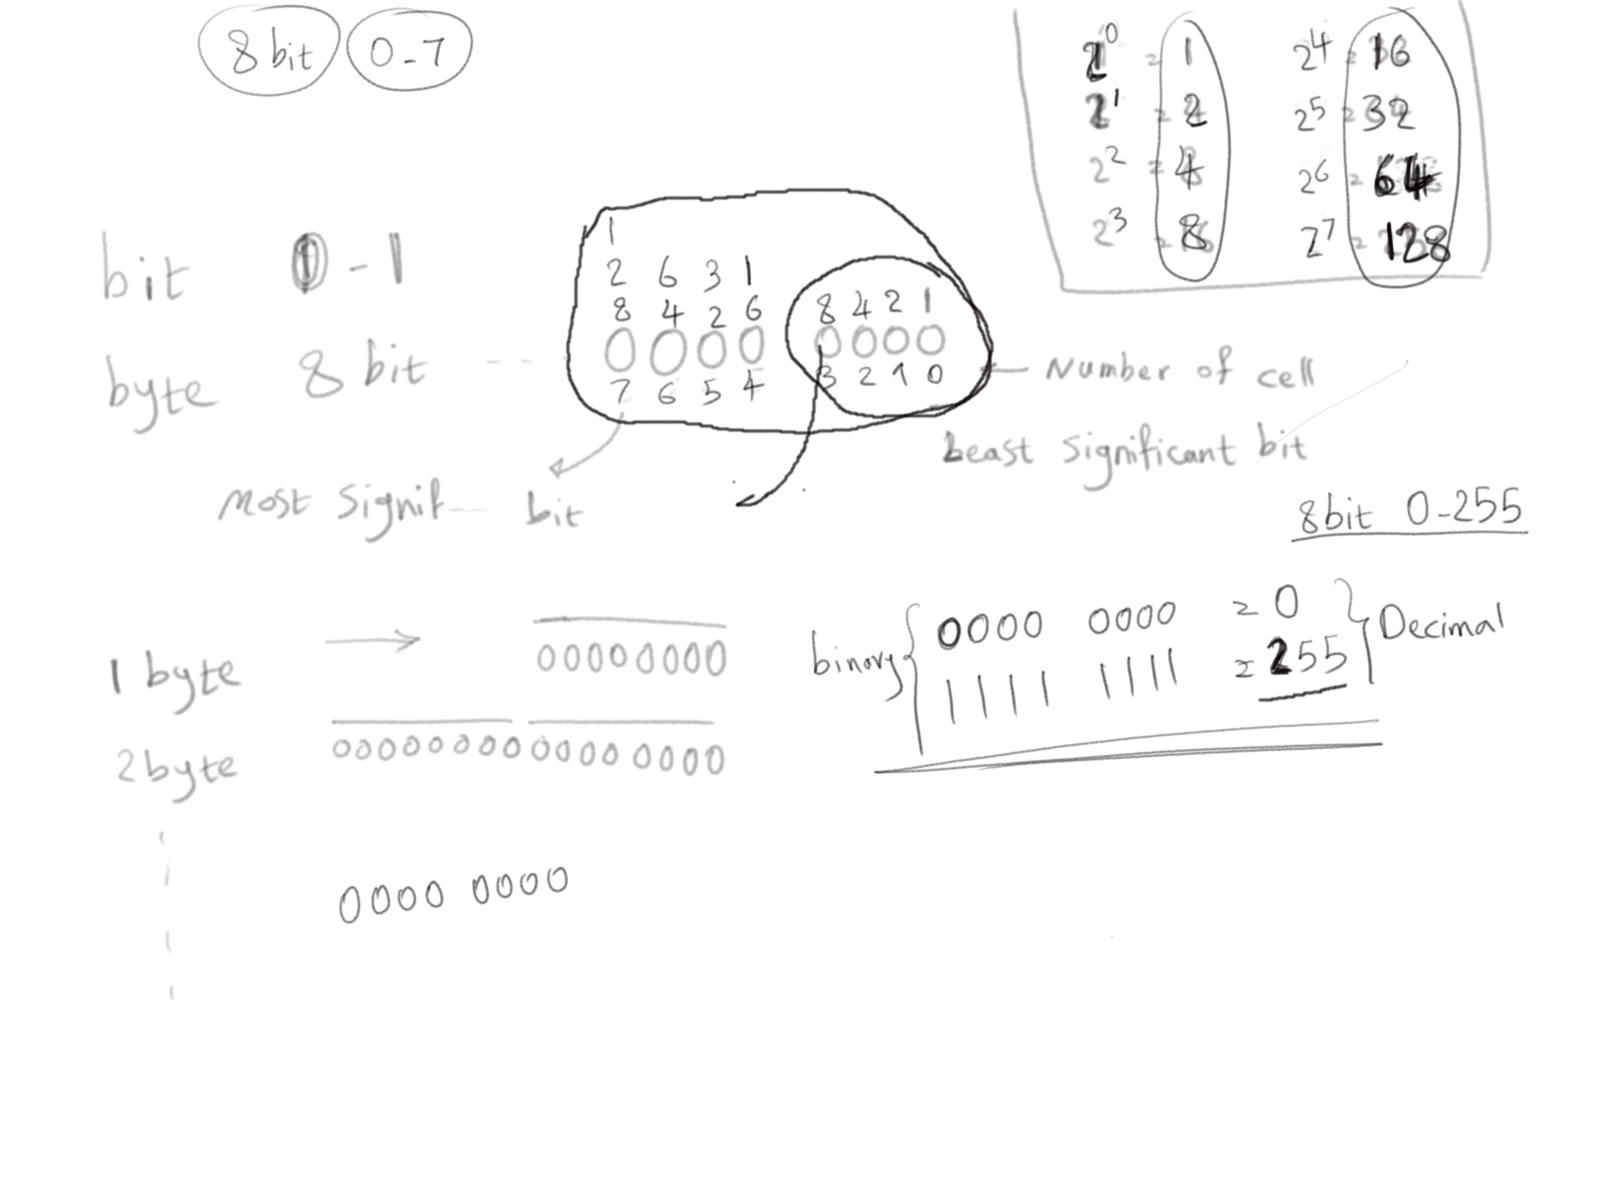 8 bit 0-7
2^0 = 1 2^4 = 16
2^1 = 2 2^5 = 32
2^2 = 4 2^6 = 64
2^3 = 8 2^7 = 128
bit 0 - 1
byte 8 bit
1
2 6 3 1
8 4 2 6 8 4 2 1
0 0 0 0 0 0 0 0
7 6 5 4 3 2 1 0
Number of cell
Least significant bit
Most signif bit
8bit 0-255
1 byte
00000000
2 byte
00000000 0000 0000
0000 0000
binary
0000 0000 = 0
1111 1111 = 255
Decimal